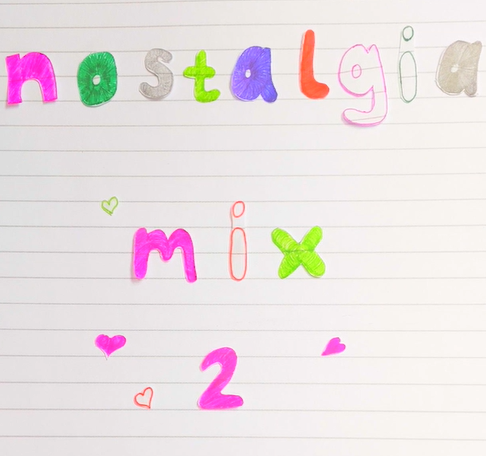 nostalgia
mix
2